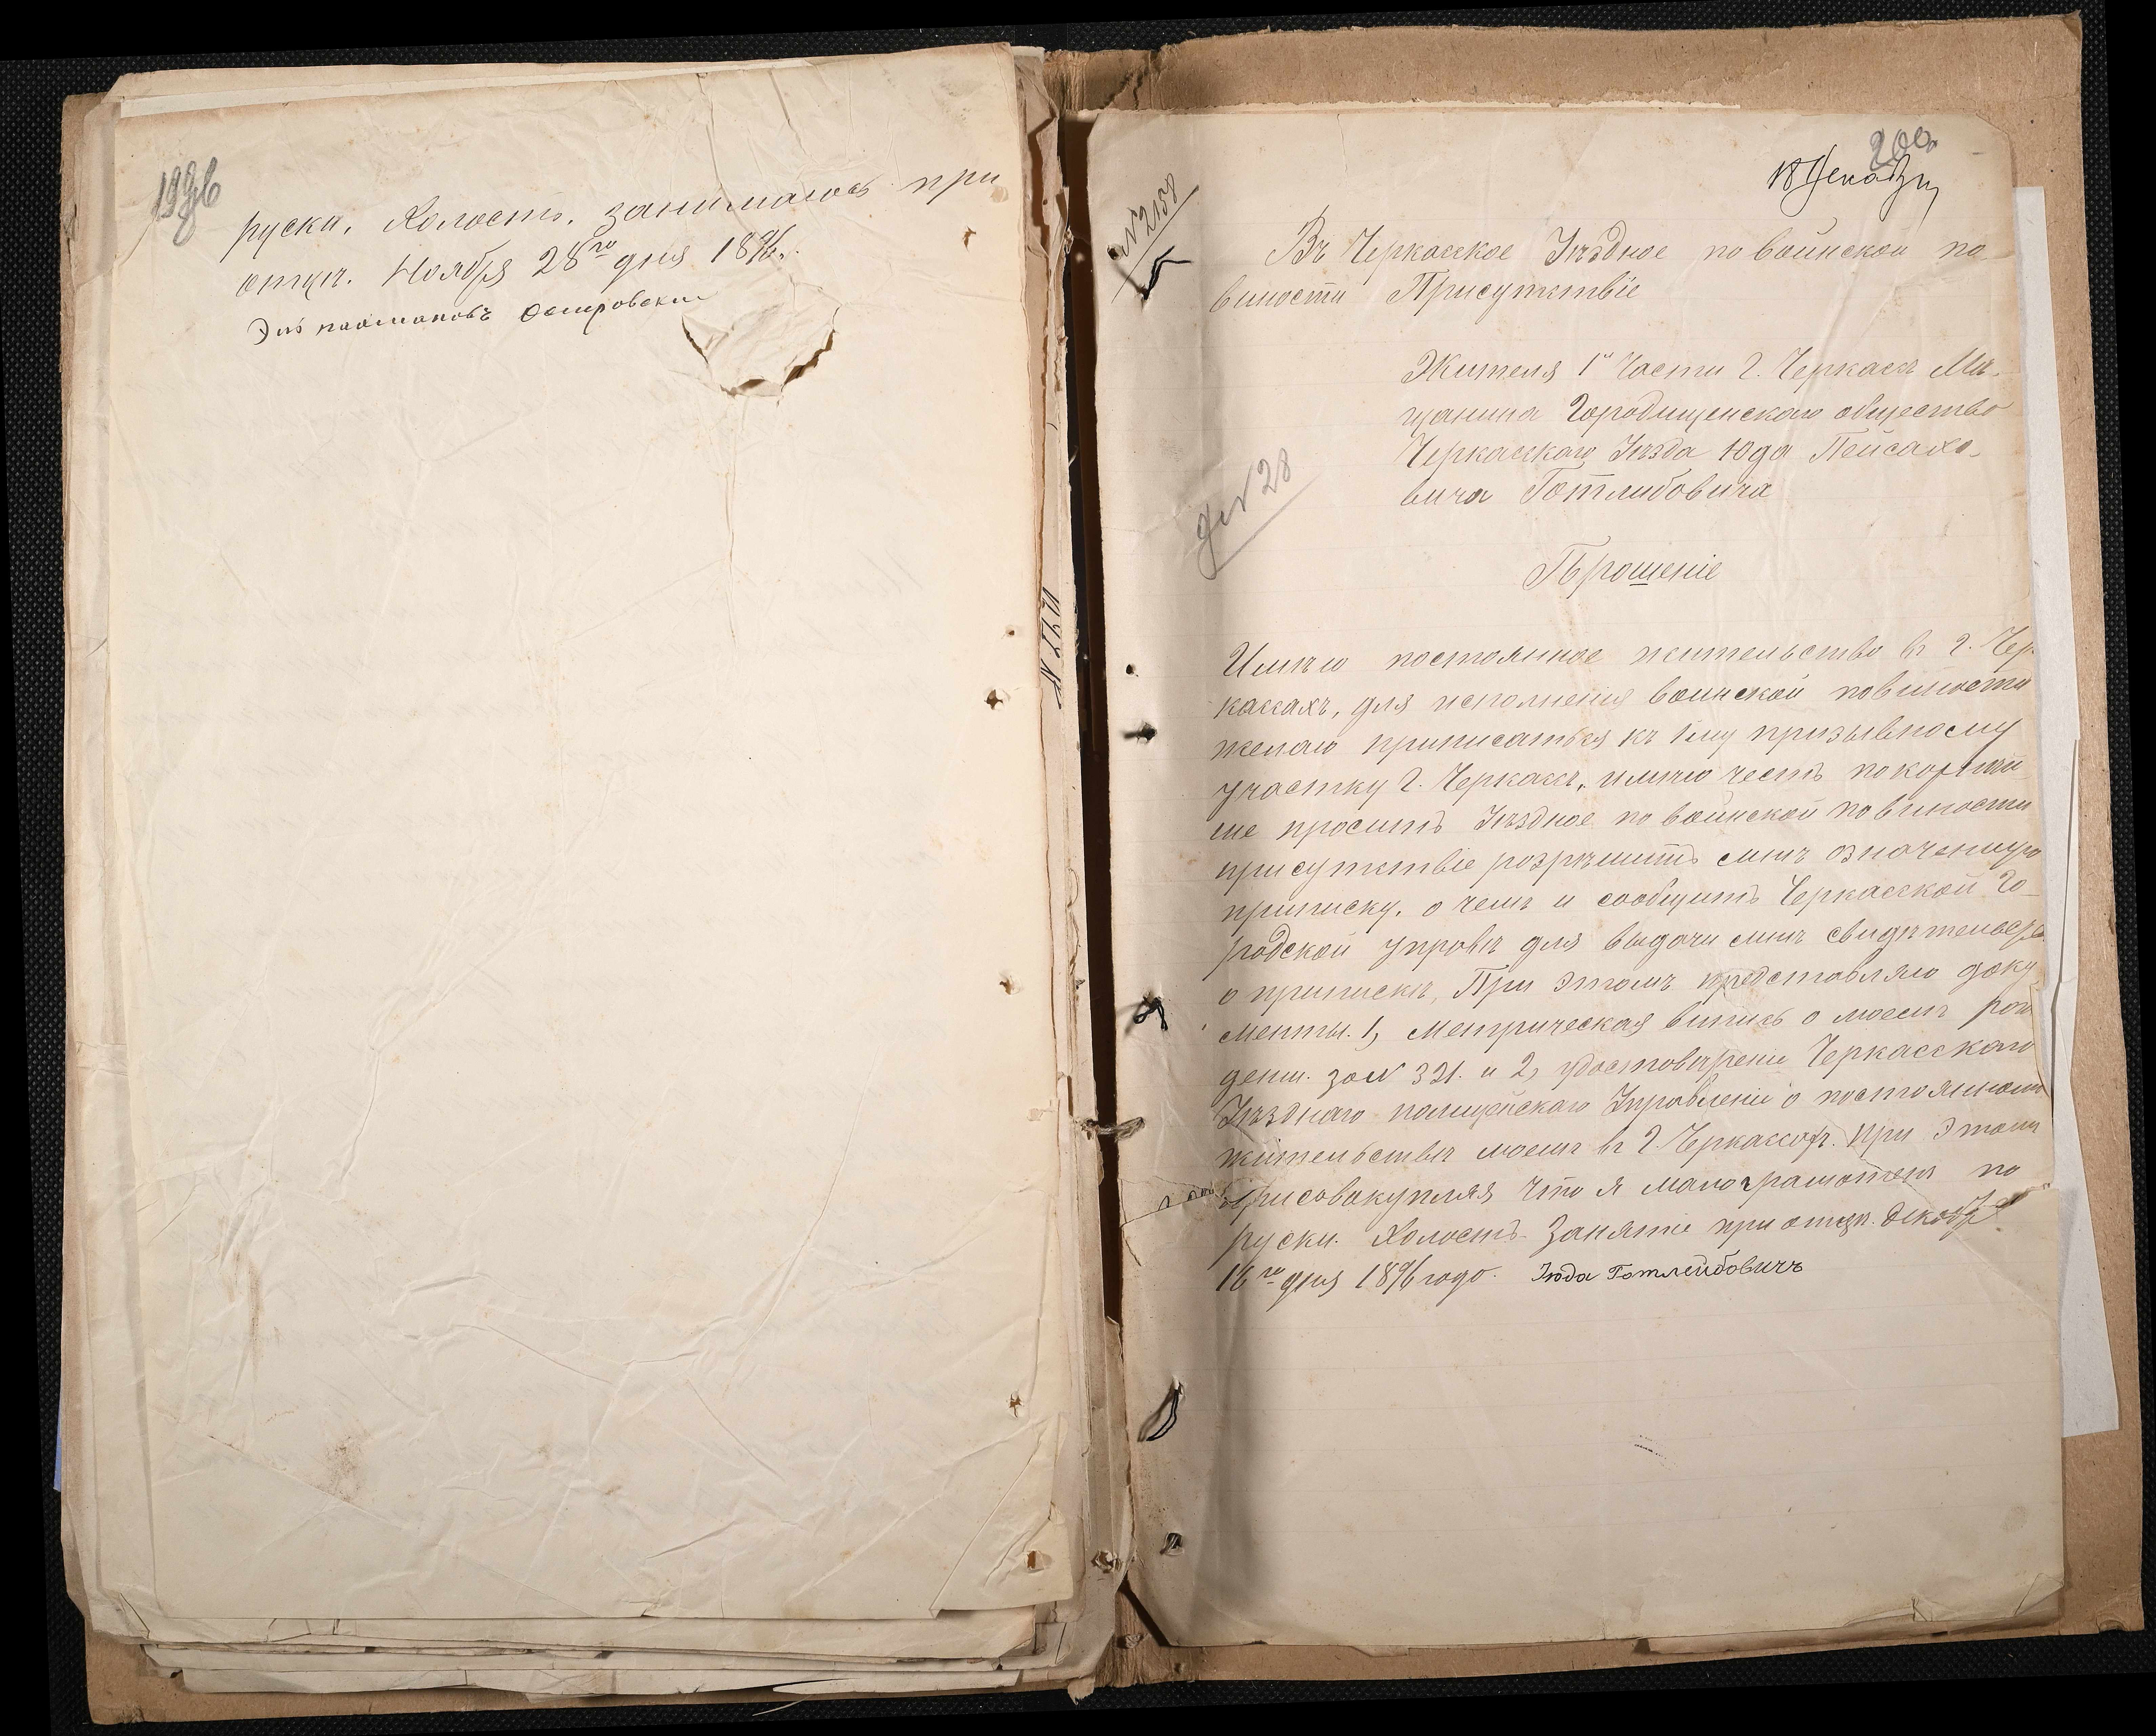 руски, Холостъ, занимаюсь при
отцѣ. Ноября 28го дня 1896 г.
Островский
200
18 Декабря
№ 2158
Въ Черкасское Уѣздное по воинской по
виности Присутствіе
Жителя 1й Части г. Черкасъ Мѣ-
щанина Городищенскаго общество
Черкасскаго Уѣзда Юда Пейсахо-
вича Готлибовича
№ 28
Прошеніе
Имѣю постоянное жительство въ г. Чер
касахъ, для исполненія воинской повиности
желаю приписаться къ 1му призывному
участку г. Черкасъ, имѣю честь покорнѣй
ше просить Уѣздное по воинской повиности
присутствіе розрѣшить мнѣ означенную
приписку, о чемъ и сообщить Черкасской Го-
родской управѣ для выдачи мнѣ свидѣтельст
о припискѣ, При этомъ представляю доку
менты. 1, Метрическая выпись о моемъ рож
дении. за № 321. и 2, удостовѣрение Черкасскаго
Уѣзднаго полицейскаго Управленіи о постоянномъ
жительствѣ моемъ въ г. Черкассахъ. При этомъ
присовокупляя что я малограмотенъ по
руски. Холостъ. Занятіе при отцѣ. Декабря
16го дня 1896 года. Июда Готлейбовичъ